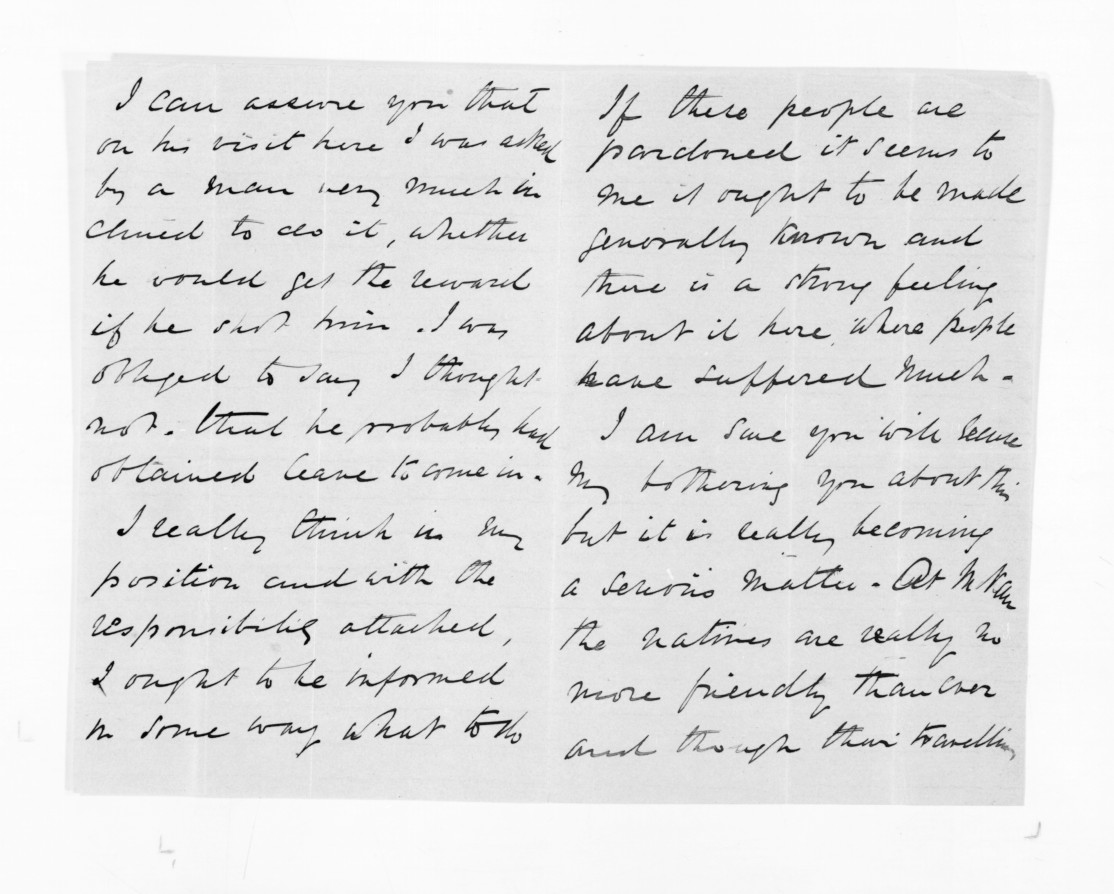 I can assure you that
on his visit here I was asked
by a man very much in
clined to do it, whether
he would get the reward
if he shot him. I was
obliged to say I thought
not. that he probably had
obtained leave to come in.
I really think in my
position and with the
responsibility attached,
I ought to be informed
in some way what to do
If these people are
pardoned it seems to
me it ought to be made
generally known and
there is a strong feeling
about it here, where people
have suffered much -
I am sure you will excuse
my bothering you about this
but it is really becoming
a serious matter - At
the natives are really no
more friendly than ever
and though their travelling